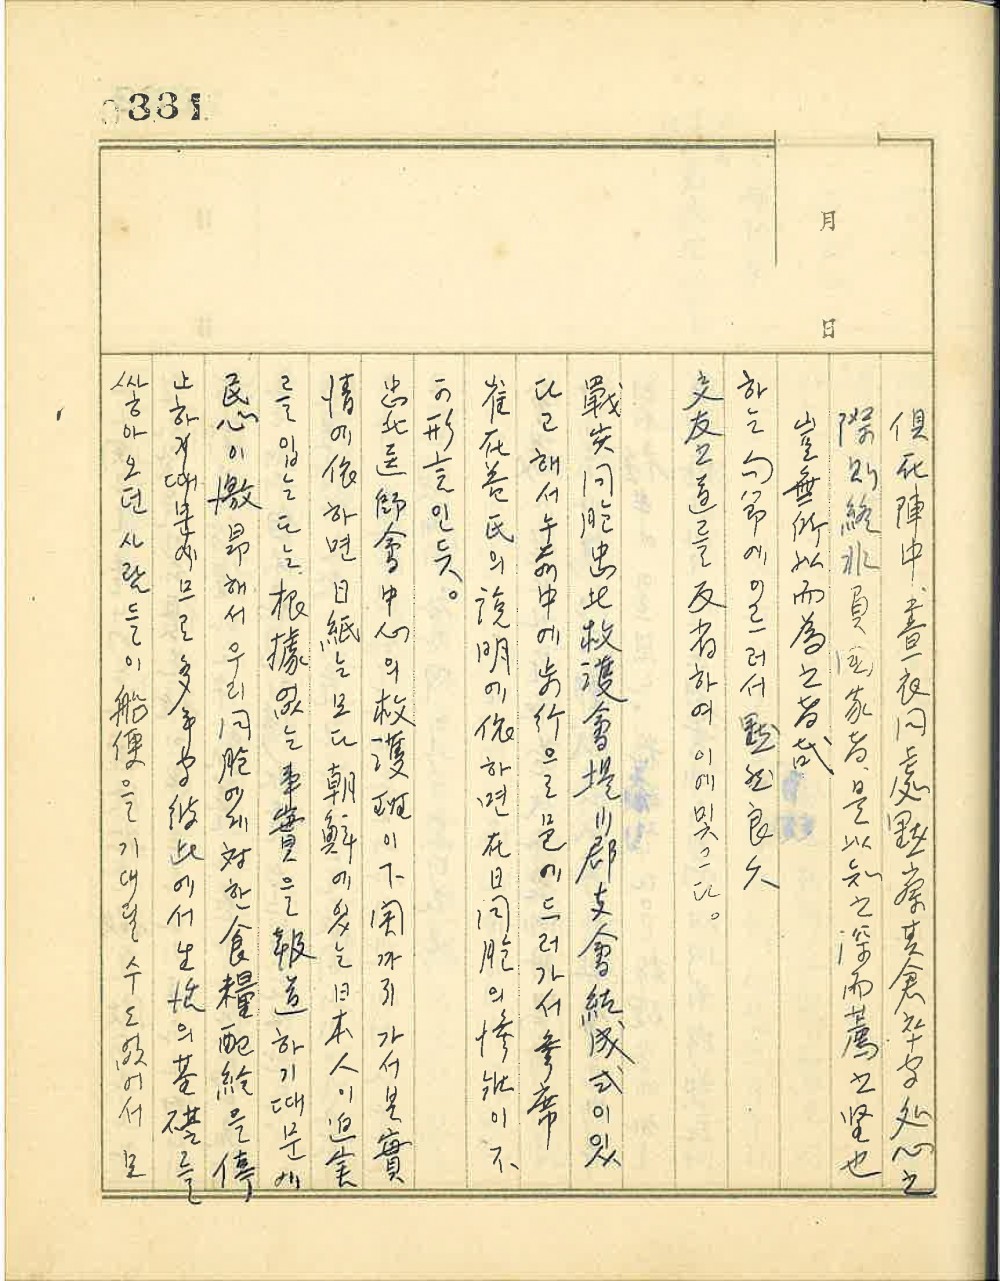 0331
月
日
俱死陣中, 晝夜同處, 默察其倉卒 處心之
際, 則終非負國家者, 是以知之深而薦之堅也
豈無所以而為之者哉
하는 句節에 이르러서 默然良久
交友之道를 反省하여 이에 맞그다。
戰災同胞忠北救護會堤川郡支會結成式이 있
다고 해서 午前中에 步行으로 邑에 드러가서 參席
崔在 氏의 說明에 依하면 在日同胞의 慘狀이 不
可形言인듯。
忠北醫師會中心의 救護班이 下関까지 가서 본 實
情에 依하면 日紙는 모다 朝鮮에 있는 日本人이 迫害
를 입는다는, 根據없는 事實을 報道하기때문에
民心이 激昻해서 우리 同胞에게 対한 食糧配給을 停
止하기때문에므로 多年 彼此에서 生活의 基礎를
쌓아오던 사람들이 船便을 기대릴 수도 없어서 모